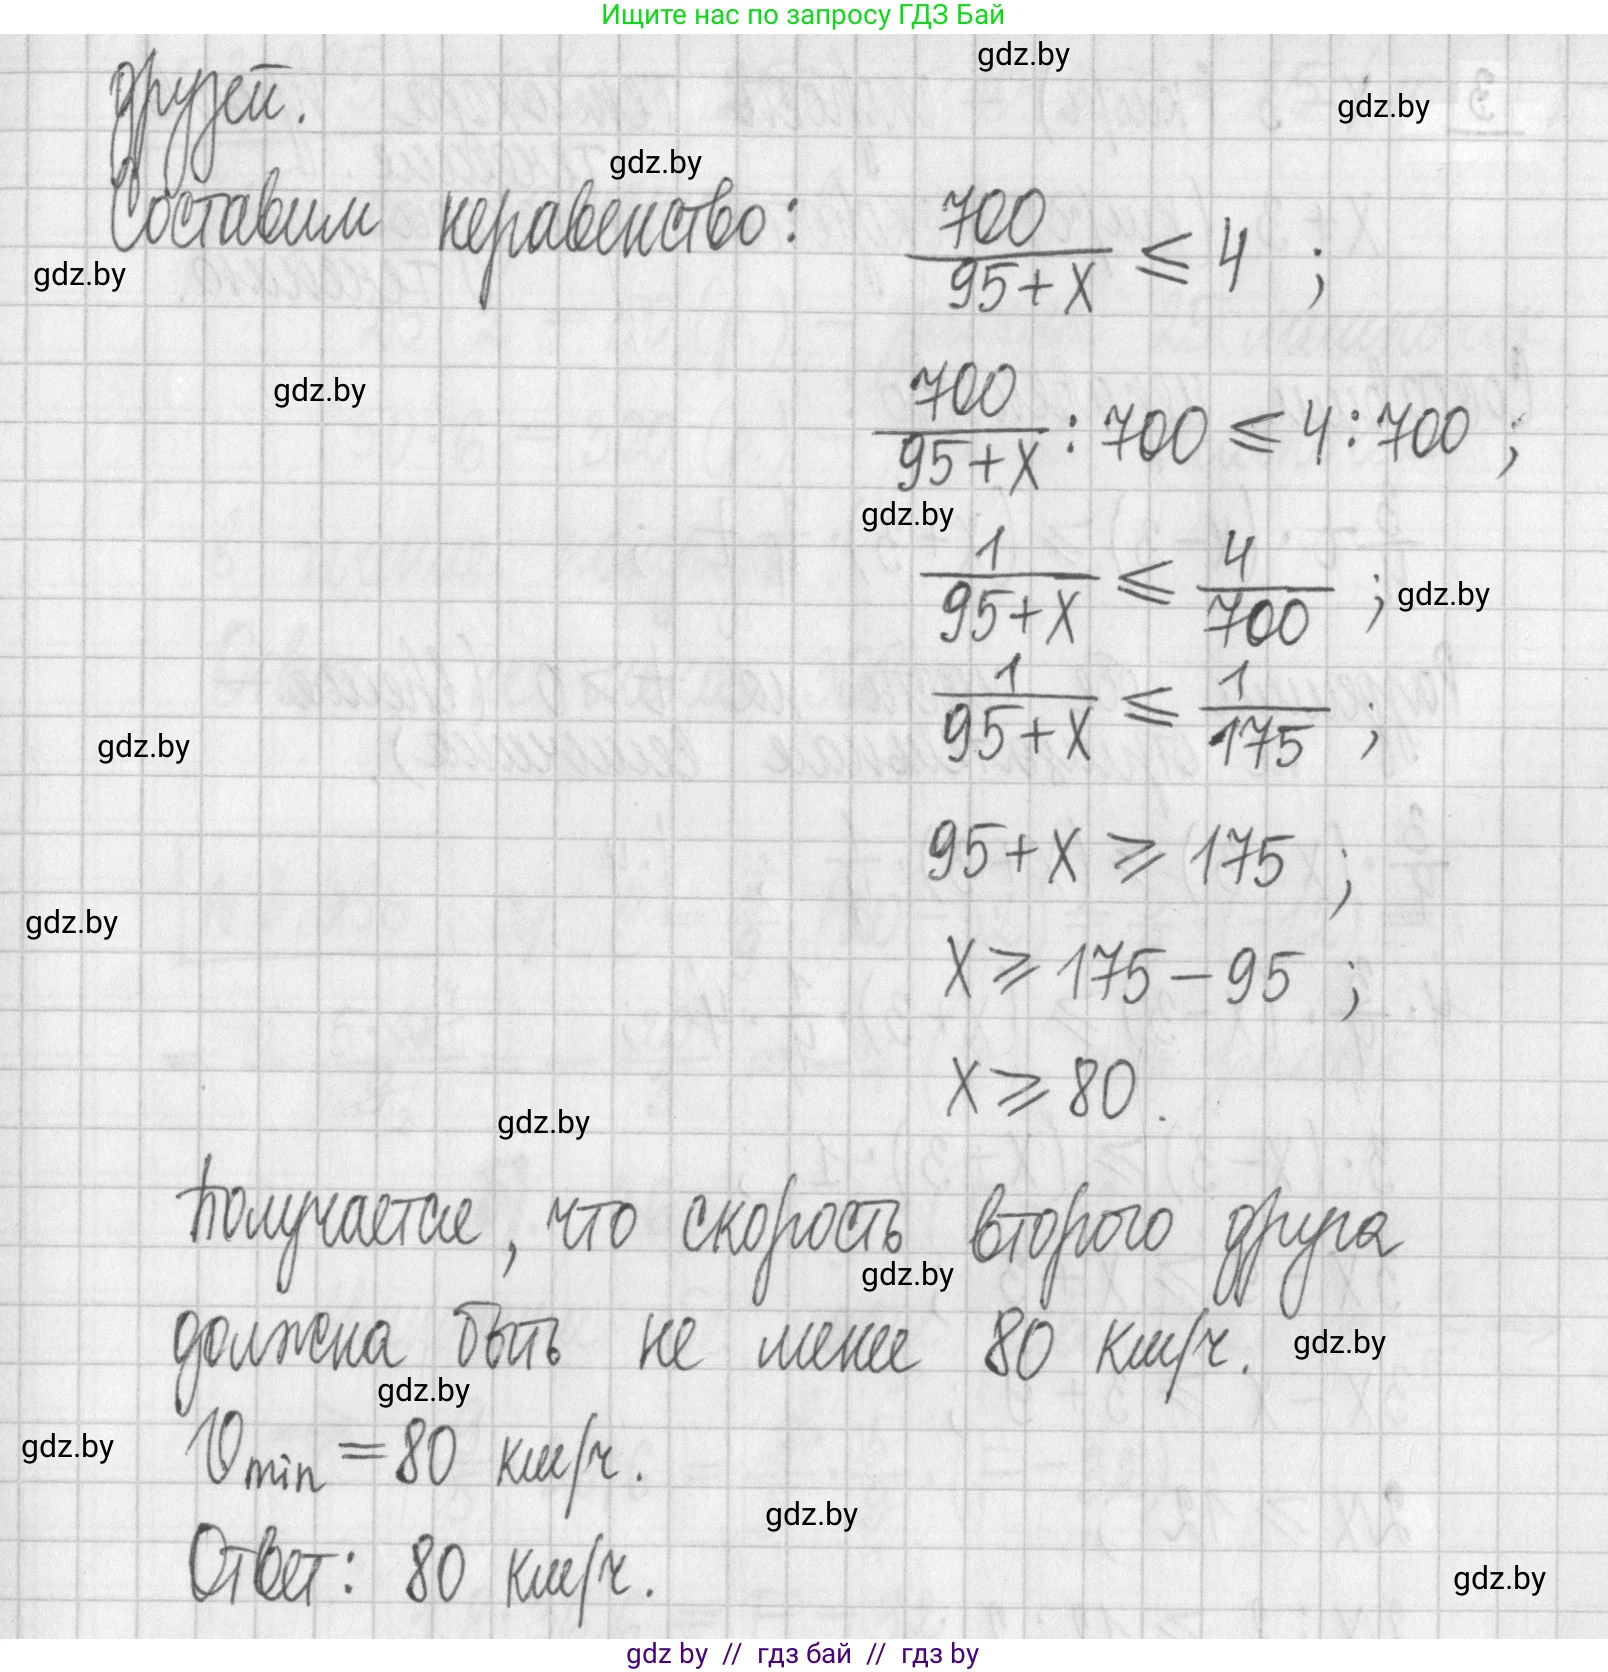 Ищите нас по запросу ГДЗ Бай
gdz.by
друзей.
gdz.by
gdz.by
Составим неравенство: 700/(95+x) ≤ 4 ;
gdz.by
gdz.by
700/(95+x) : 700 ≤ 4 : 700 ;
gdz.by
1/(95+x) ≤ 4/700 ;
gdz.by
1/(95+x) ≤ 1/175 ;
gdz.by
95+x ≥ 175 ;
gdz.by
x ≥ 175 − 95 ;
x ≥ 80 .
gdz.by
Получается, что скорость второго друга
gdz.by
должна быть не менее 80 км/ч.
gdz.by
gdz.by
Vmin = 80 км/ч.
gdz.by
gdz.by
Ответ: 80 км/ч.
gdz.by
gdz by // гдз бай // гдз by